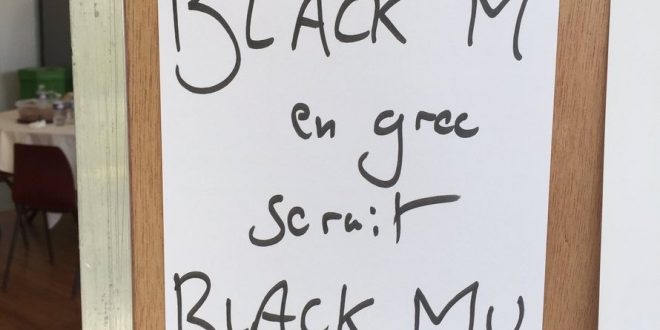 BLACK M
en grec
serait
BLACK MU